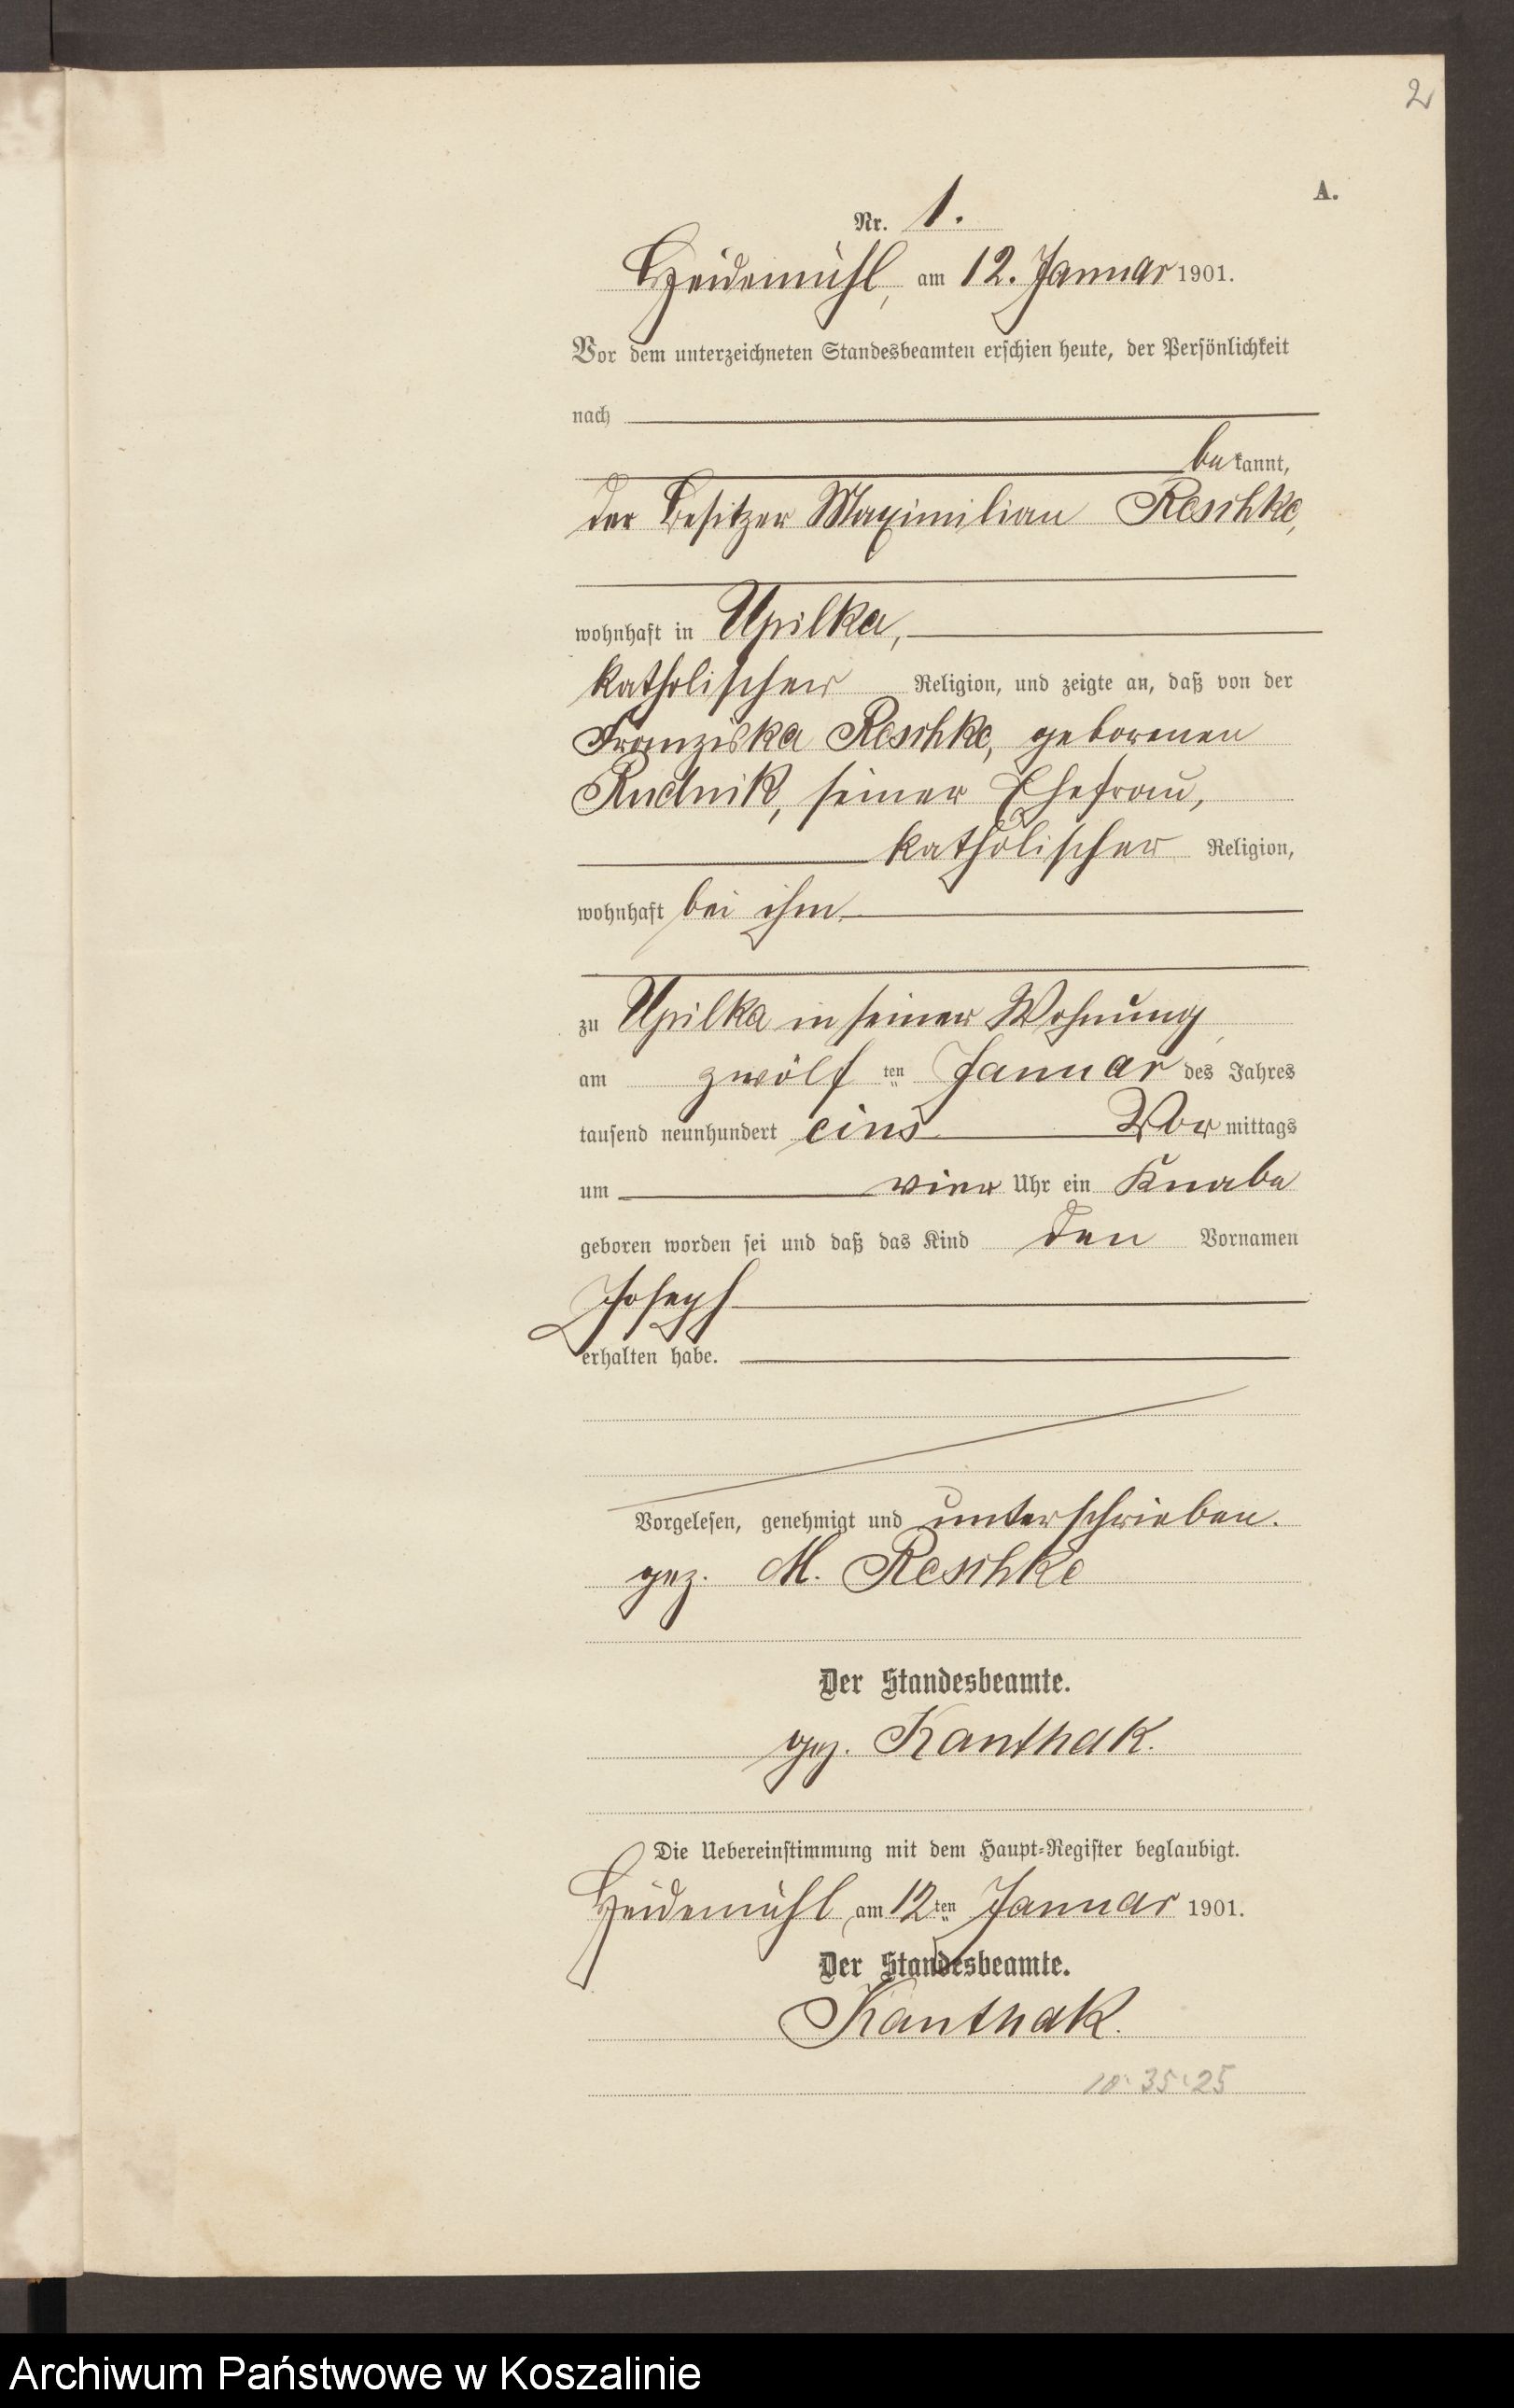 2
A.
Nr. 1.
Heidemühl, am 12. Januar 1901.
Vor dem unterzeichneten Standesbeamten erschien heute, der Persönlichkeit
nach
bekannt,
der Besitzer Maximilian Reschke,
wohnhaft in Upilka,
katholischer Religion, und zeigte an, daß von der
Franziska Reschke, geborenen
Rudnik, seiner Ehefrau,
katholischer Religion,
wohnhaft bei ihm
zu Upilka in seiner Wohnung,
am zwölften Januar des Jahres
tausend neunhundert eins Vormittags
um vier Uhr ein Knabe
geboren worden sei und daß das Kind den Vornamen
Joseph
erhalten habe.
Vorgelesen, genehmigt und unterschrieben.
gez. M. Reschke
Der Standesbeamte.
gez. Kanthak.
Die Uebereinstimmung mit dem Haupt-Register beglaubigt.
Heidemühl, am 12ten Januar 1901.
Der Standesbeamte.
Kanthak.
10:35:25
Archiwum Państwowe w Koszalinie